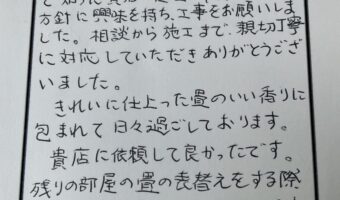 方針に興味を持ち、工事をお願いしま
した。相談から施工まで、親切丁寧
に対応していただきありがとうござ
いました。
きれいに仕上った畳のいい香りに
包まれて日々過ごしております。
貴店に依頼して良かったです。
残りの部屋の畳の表替えをする際